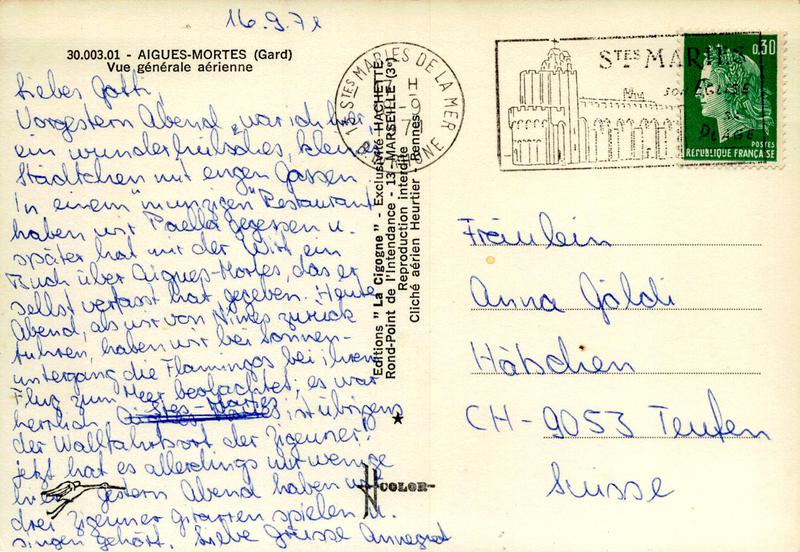 16.9.71
30.003.01 - AIGUES-MORTES (Gard)
Vue générale aérienne
Liebes Gotti,
Vorgestern Abend war ich hier
ein wunderhübsches, kleines
Städtchen mit engen Gassen.
In einem "munzigen" Restaurant
haben wir Paella gegessen u.
später hat mir der Wirt ein
Buch über Aigues-Mortes, das er
selbst verfasst hat, gegeben. Heute
Abend, als wir von Nîmes zurück
fuhren, haben wir bei Sonnen-
untergang die Flamingos bei ihrem
Flug zum Meer beobachtet; es war
herrlich. Stes-Maries ist übrigens
der Wallfahrtsort der Zigeuner!
jetzt hat es allerdings nur wenige
hier. Gestern Abend haben wir
drei Zigeuner Gitarren spielen u.
singen gehört. Liebe Grüsse Annegret
Editions "La Cigogne" - Exclusivité HACHETTE
Rond-Point de l'Intendance - 13 - MARSEILLE (3e)
Reproduction interdite
Cliché aérien Heurtier - Rennes
COLOR
STES MARIES DE LA MER
STES MARIES
SON ÉGLISE
SA PLAGE
0,30
POSTES
RÉPUBLIQUE FRANÇAISE
Fräulein
Anna Göldi
Häbschen
CH-9053 Teufen
Suisse